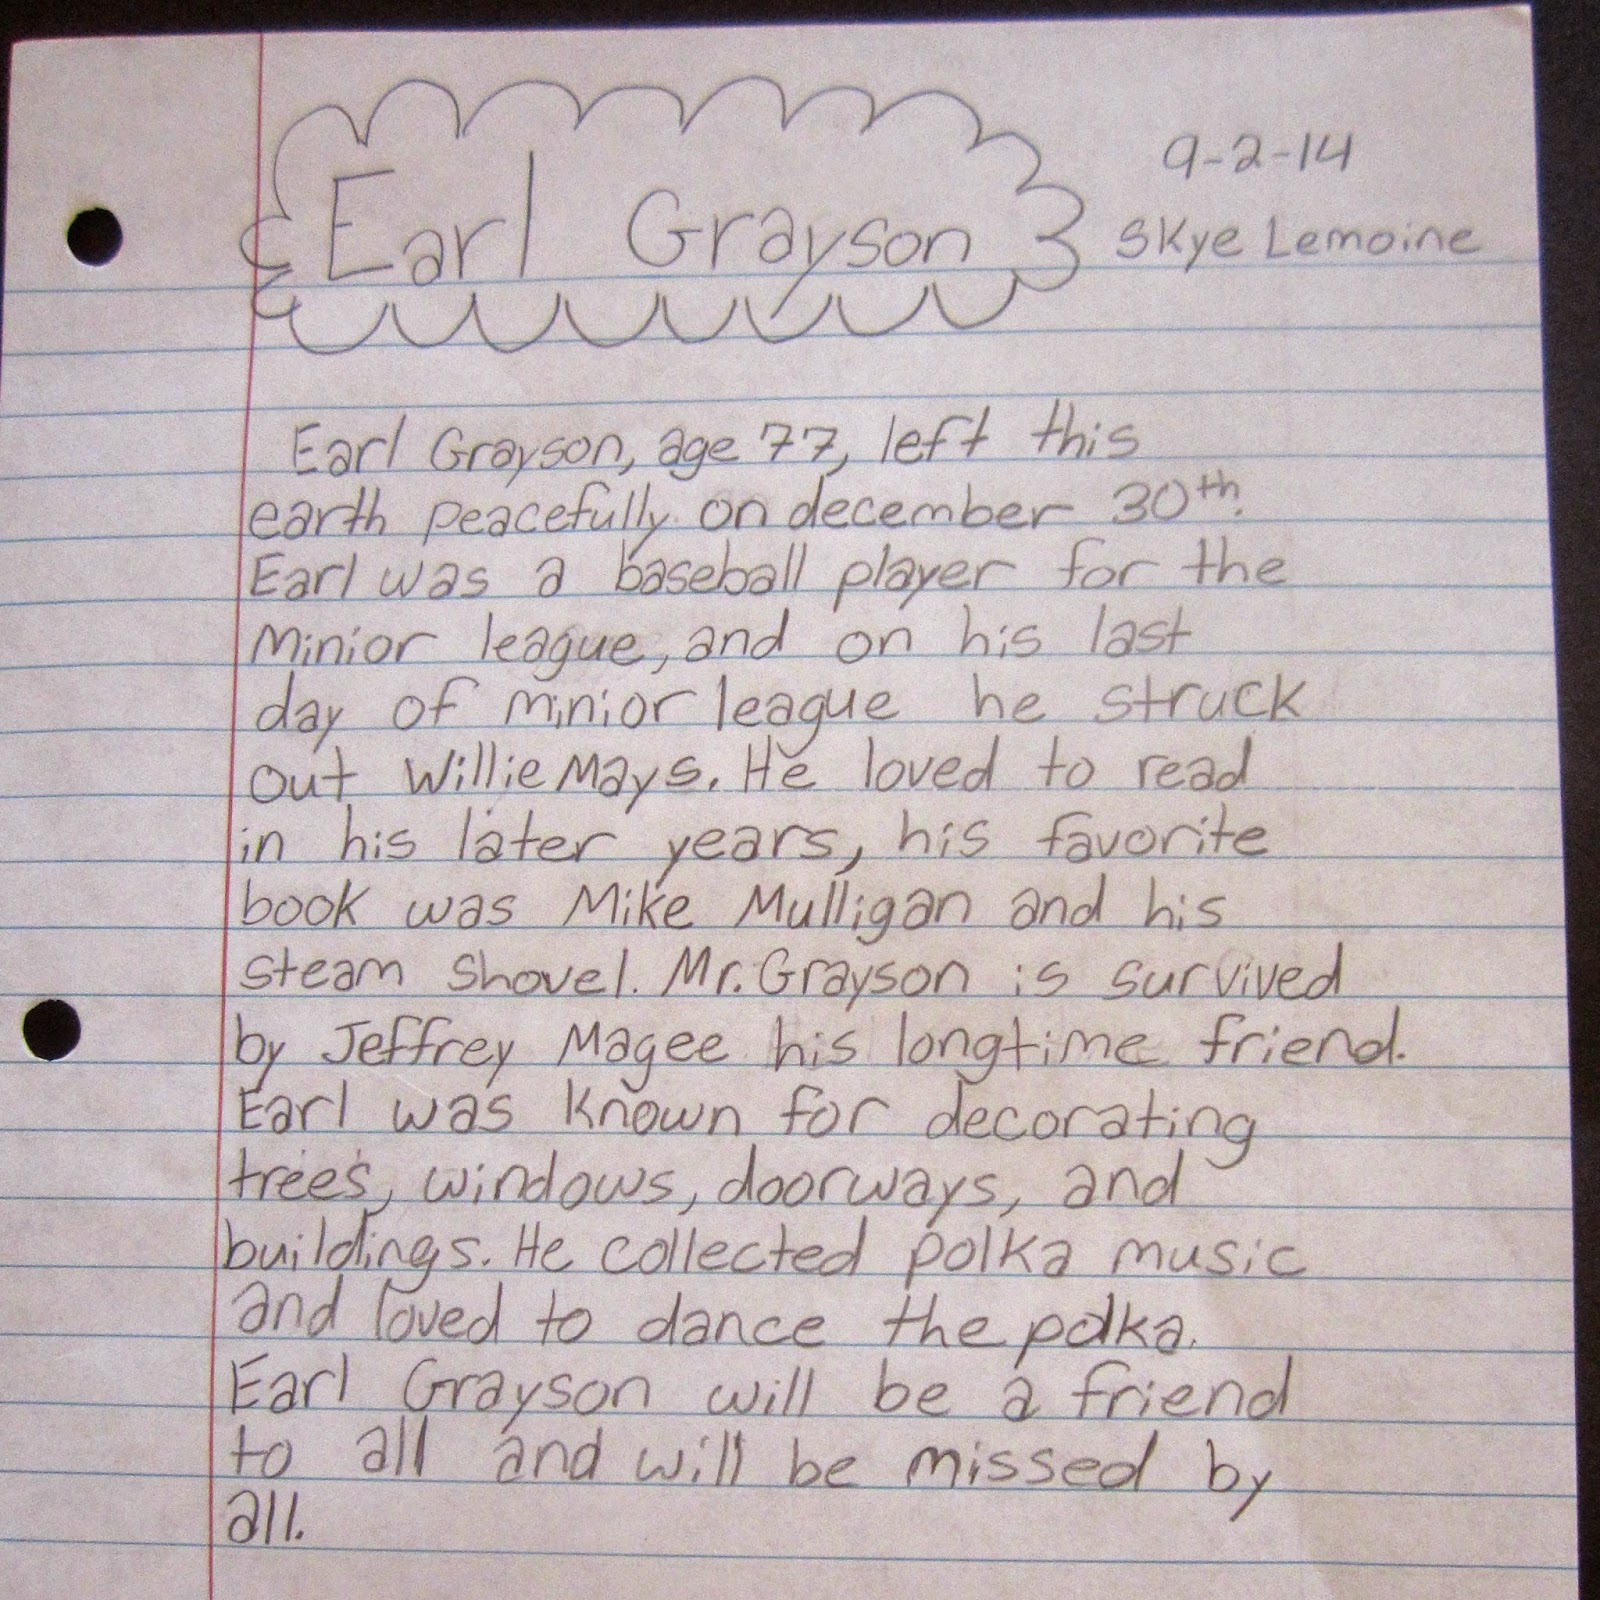 9-2-14
Earl Grayson
Skye Lemoine
Earl Grayson, age 77, left this
earth peacefully on december 30th.
Earl was a baseball player for the
Minior league, and on his last
day of minior league he struck
out Willie Mays. He loved to read
in his later years, his favorite
book was Mike Mulligan and his
steam shovel. Mr. Grayson is survived
by Jeffrey Magee his longtime friend.
Earl was known for decorating
trees, windows, doorways, and
buildings. He collected polka music
and loved to dance the polka.
Earl Grayson will be a friend
to all and will be missed by
all.